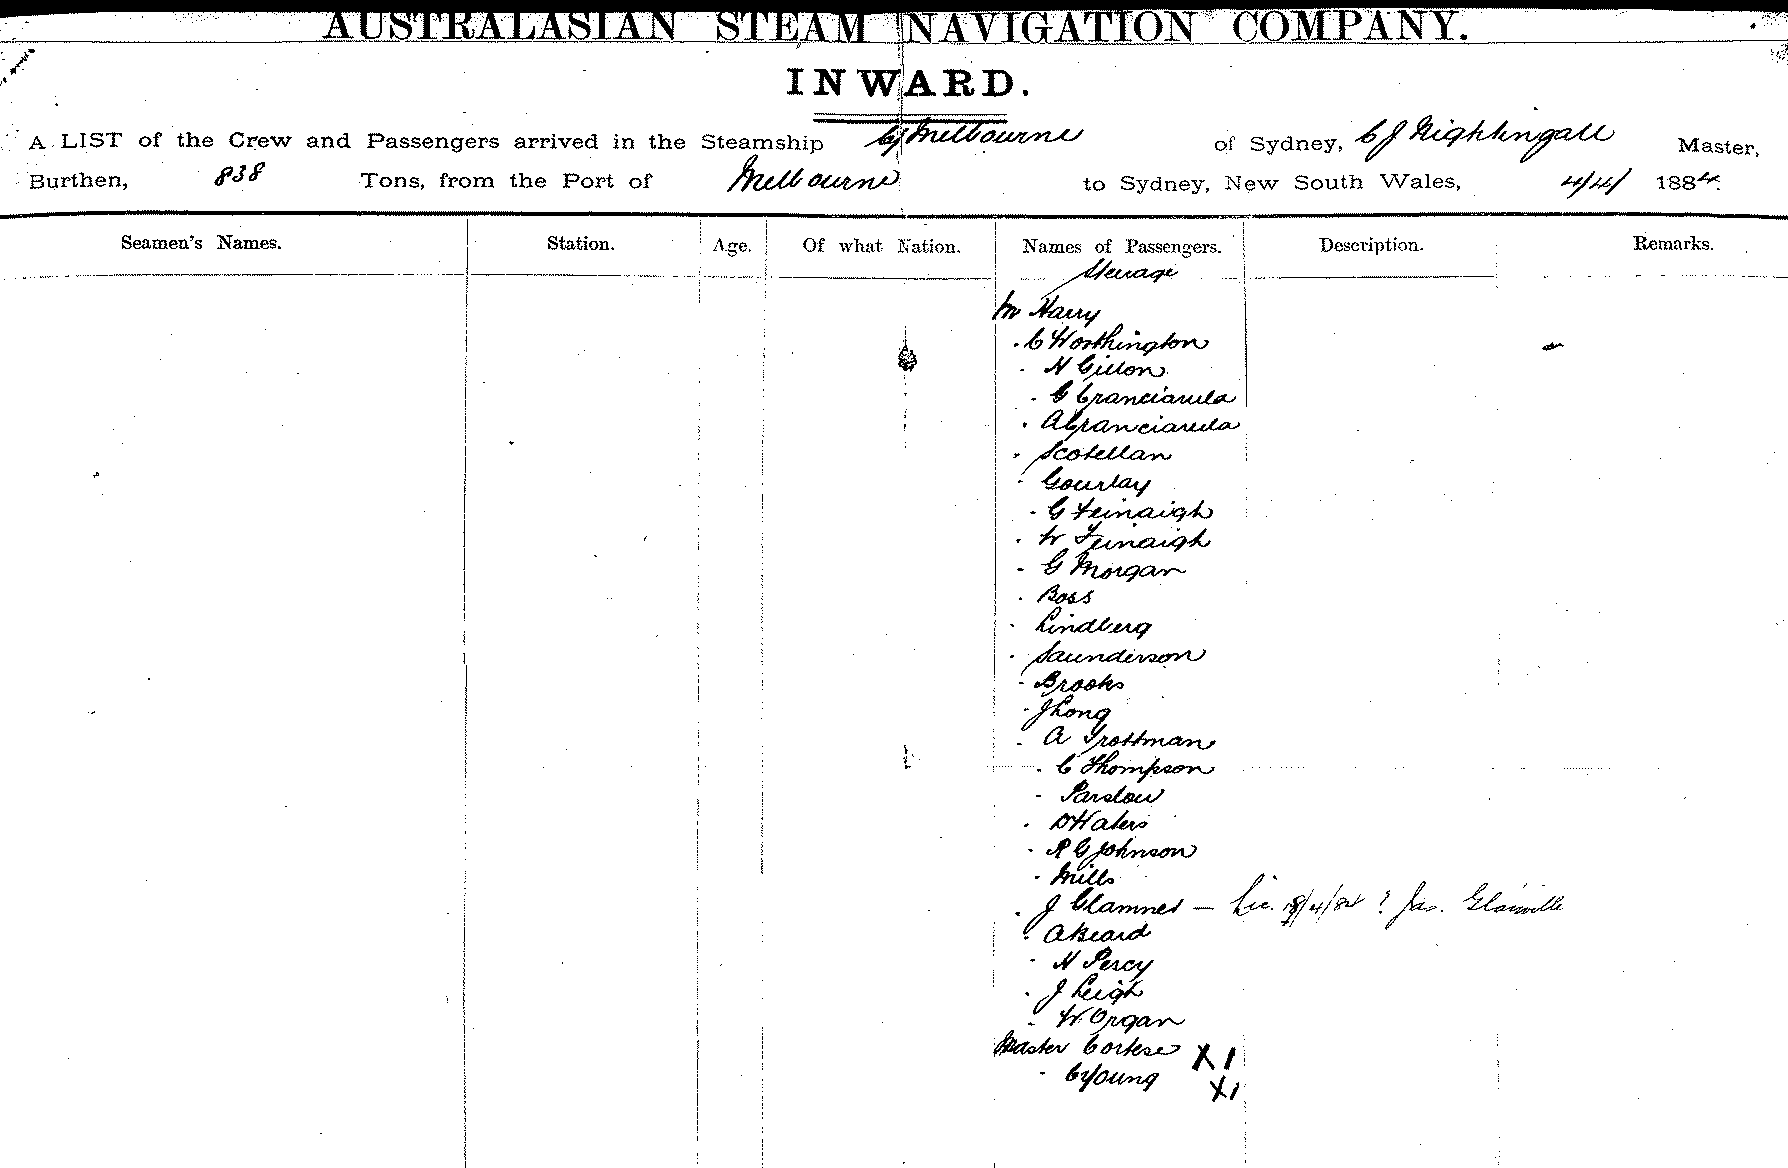 AUSTRALASIAN STEAM NAVIGATION COMPANY.
INWARD.
A LIST of the Crew and Passengers arrived in the Steamship Cy Melbourne of Sydney, C J Nightingall Master,
Burthen, 838 Tons, from the Port of Melbourne to Sydney, New South Wales, 4/4/ 1884.
Seamen's Names. Station. Age. Of what Nation. Names of Passengers. Description. Remarks.
Steerage
Mr Harry
" C Worthington
" H Gillon
" G
" A
" Scotellan
" Gourlay
" G Feinaigh
" W Feinaigh
" G Morgan
" Boss
" Lindberg
" Saunderson
" Brooks
" J Long
" A Trottman
" C Thompson
" Parslow
" D Waters
" R G Johnson
" Mills
" J Glamnes — Lic. 18/4/84 ? Jas. Glanville
" A Beard
" H Percy
" J Leigh
" W Organ
Master Cortese X 1
" C Young X 1